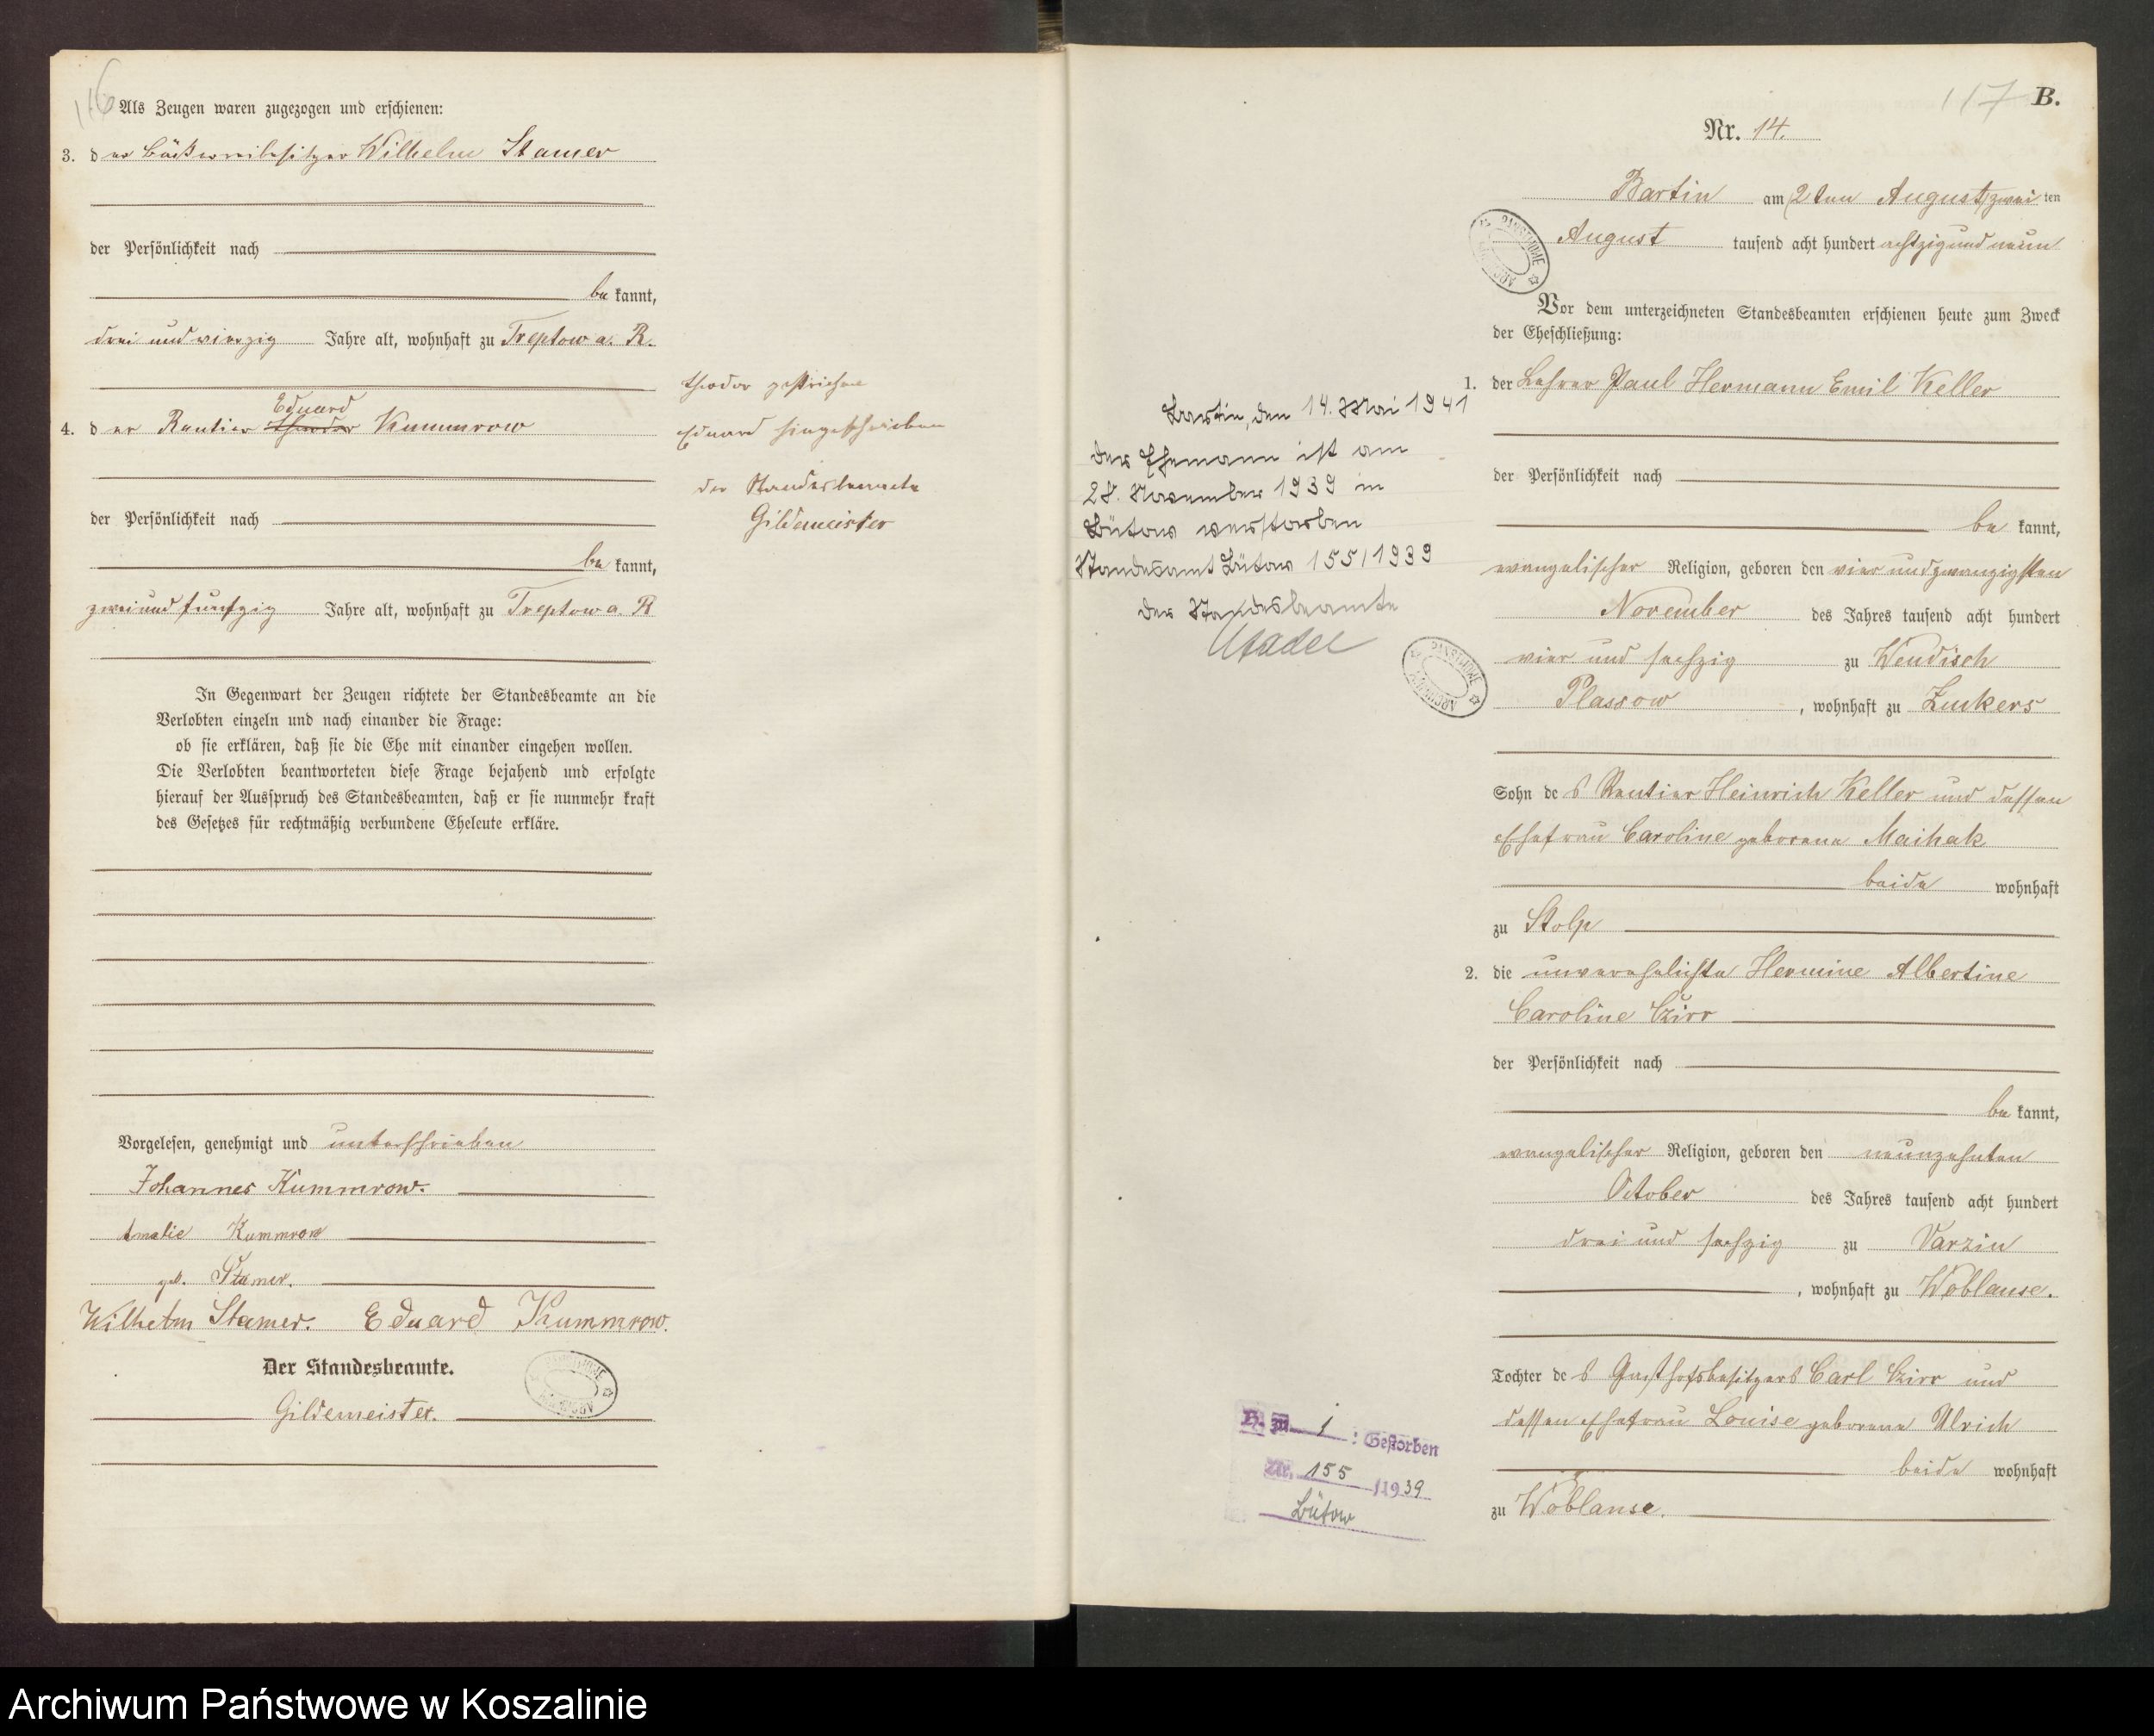 116
Als Zeugen waren zugezogen und erschienen:
3. der Bäckereibesitzer Wilhelm Stamer
der Persönlichkeit nach
be kannt,
drei und vierzig Jahre alt, wohnhaft zu Treptow a. R.
Eduard
4. der Rentier Theodor Kummrow
der Persönlichkeit nach
be kannt,
zwei und fünfzig Jahre alt, wohnhaft zu Treptow a. R
Theodor gestrichen
Eduard hingeschrieben
der Standesbeamte
Gildemeister
In Gegenwart der Zeugen richtete der Standesbeamte an die
Verlobten einzeln und nach einander die Frage:
ob sie erklären, daß sie die Ehe mit einander eingehen wollen.
Die Verlobten beantworteten diese Frage bejahend und erfolgte
hierauf der Ausspruch des Standesbeamten, daß er sie nunmehr kraft
des Gesetzes für rechtmäßig verbundene Eheleute erkläre.
Vorgelesen, genehmigt und unterschrieben
Johannes Kummrow.
Amalie Kummrow
geb. Stamer.
Wilhelm Stamer. Eduard Kummrow.
Der Standesbeamte.
Gildemeister.
117 B.
Nr. 14.
Bartin am (2ten August) zwei ten
August tausend acht hundert achtzig und neun
Vor dem unterzeichneten Standesbeamten erschienen heute zum Zweck
der Eheschließung:
1. der Lehrer Paul Hermann Emil Keller
der Persönlichkeit nach
be kannt,
evangelischer Religion, geboren den vier und zwanzigsten
November des Jahres tausend acht hundert
vier und sechzig zu Wendisch
Plassow, wohnhaft zu Zuckers
Sohn des Rentier Heinrich Keller und dessen
Ehefrau Caroline geborene Maihak
beide wohnhaft
zu Stolp
2. die unverehelichte Hermine Albertine
Caroline Czirr
der Persönlichkeit nach
be kannt,
evangelischer Religion, geboren den neunzehnten
October des Jahres tausend acht hundert
drei und sechzig zu Varzin
, wohnhaft zu Woblanse.
Tochter des Gasthofsbesitzers Carl Czirr und
dessen Ehefrau Louise geborene Ulrich
beide wohnhaft
zu Woblanse.
Bartin, den 14. Mai 1941
Der Ehemann ist am
28. November 1939 in
Bütow verstorben
Standesamt Bütow 155/1939
Der Standesbeamte
B. zu 1 : Gestorben
Nr. 155 /1939
Bütow
Archiwum Państwowe w Koszalinie